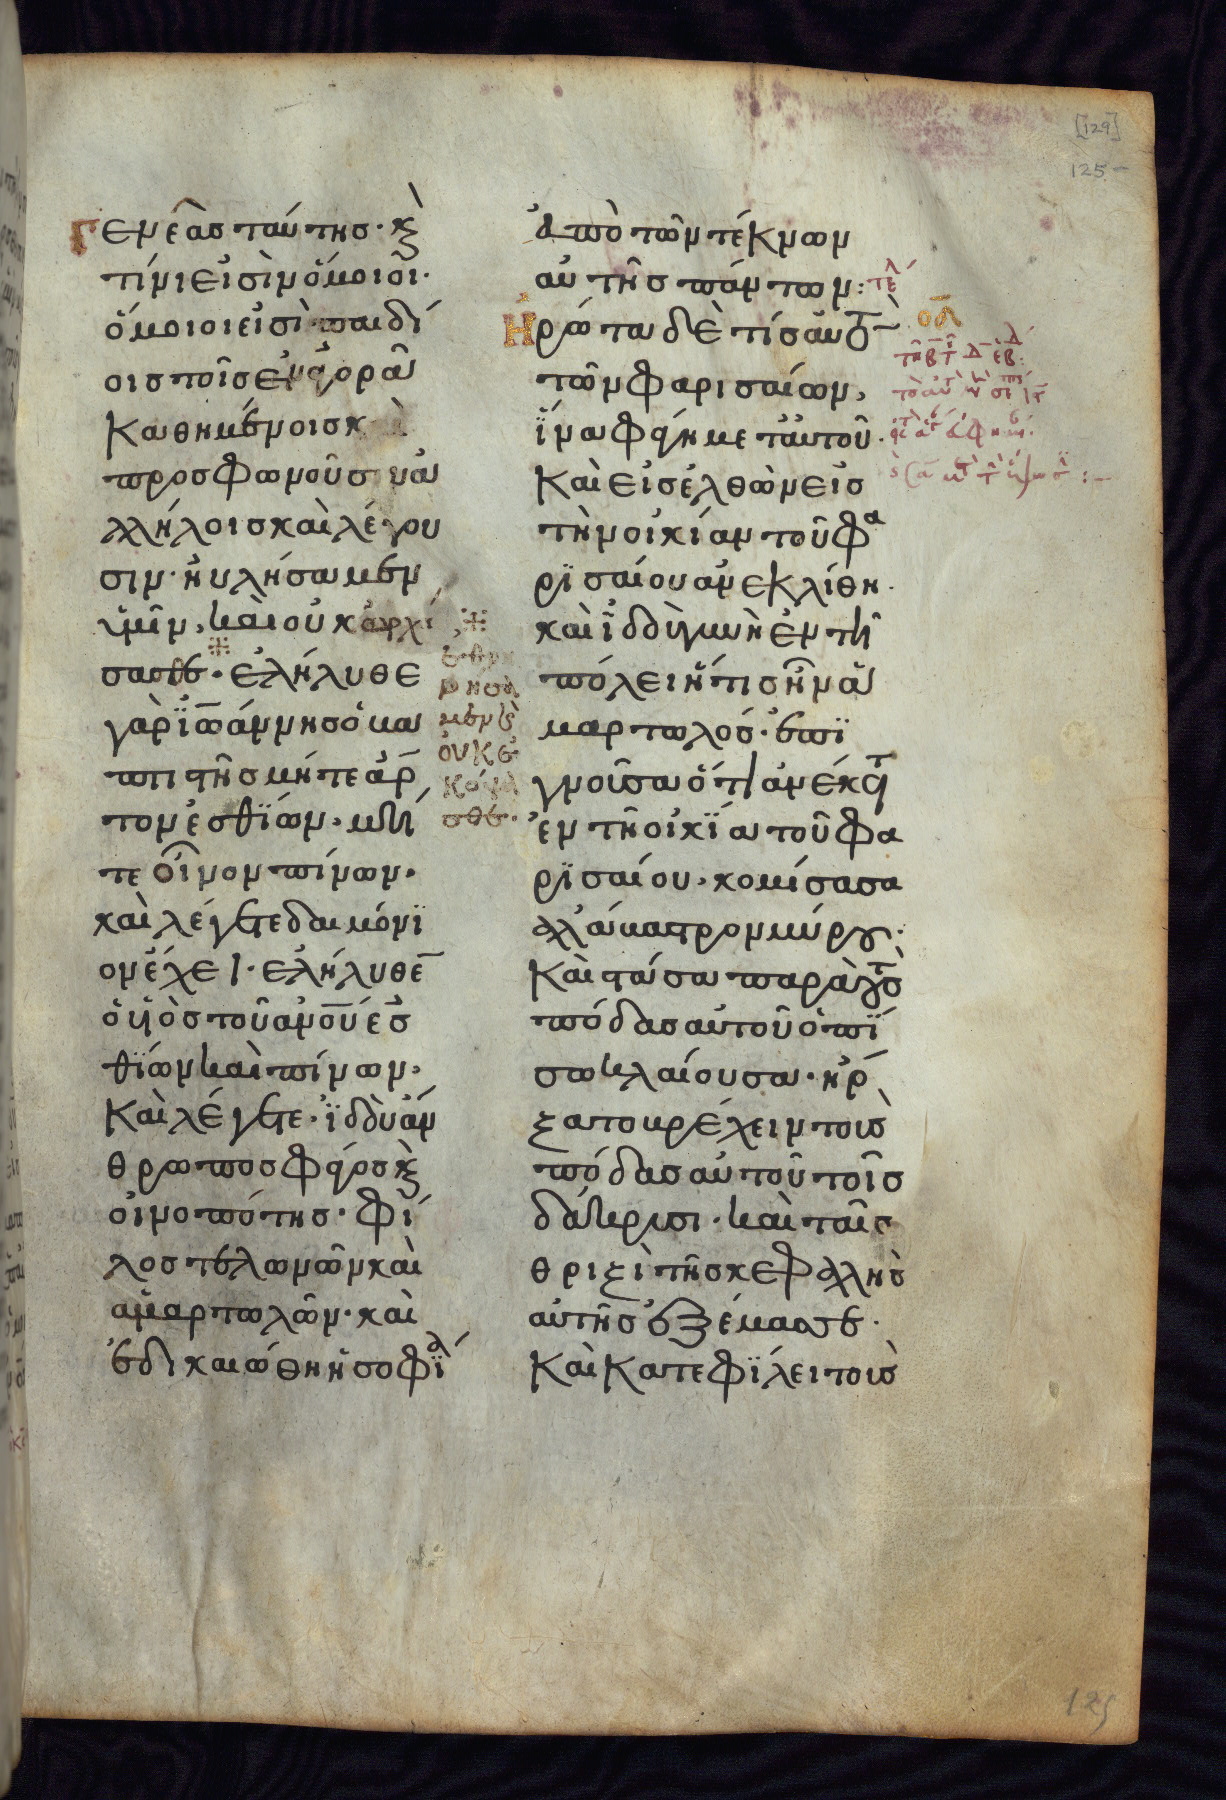 [129]
125-
γενεᾶς ταύτης· κ̀
τίνι εἰσὶν ὅμοιοι·
ὅμοιοί εἰσὶ παιδί
οις τοῖς ἐν ἀγορᾶ
καθημένοις κ
προσφωνοῦσιν ἀ
λλήλοις καὶ λέγου
σιν· ηὐλήσαμεν
ὑμῖν, καὶ οὐκ ὠρχή
σασθε· ἐλήλυθε
γὰρ ἰωάννης ὁ βα
πτιστῆς μήτε ἄρ
τον ἐσθίων· μή
τε οἶνον πίνων·
καὶ λέγετε δαιμόνϊ
ον ἔχει· ἐλήλυθε̄
ὁ υἱὸς τοῦ ανου ἐσ
θίων καὶ πίνων·
καὶ λέγετε· ἰδοὺ ἄν
θρωπος φάγος κ̀
οἰνοπότης· φί
λος τελωνῶν καὶ
ἁμαρτωλῶν· καὶ
ἐδικαιώθη ἡ σοφϊα
ἐθρη
νησα
μεν κ̀
οὐκ ἐ
κόψα
σθε·
ἀπὸ τῶν τέκνων
αὐτῆς πάντων: τελ
Ἠρώτα δέ τίς αὐτ
τῶν φαρισαίων,
ἵνα φάγη μετ' αὐτοῦ·
καὶ εἰσελθὼν εἰς
τὴν οἰκίαν τοῦ φα
ρϊσαίου ἀνεκλίθη·
καὶ ἰδοὺ γυνὴ ἐν τῆ
πόλει ἥτις ἦν ἁ
μαρτωλός· ἐπϊ
γνοῦσα ὅτι ἀνέκειτ
ἐν τῆ οἰκία τοῦ φα
ρϊσαίου· κομίσασα
ἀλάβαστρον μύρου·
καὶ στᾶσα παρὰ τοὺς
πόδας αὐτοῦ ὀπί
σω κλαίουσα· ἤρ
ξατο βρέχειν τοὺς
πόδας αὐτοῦ τοῖς
δάκρυσι· καὶ ταῖς
θριξὶ τῆς κεφαλῆς
αὐτῆς ἐξέμασσε·
καὶ κατεφίλει τοὺς
οα
125